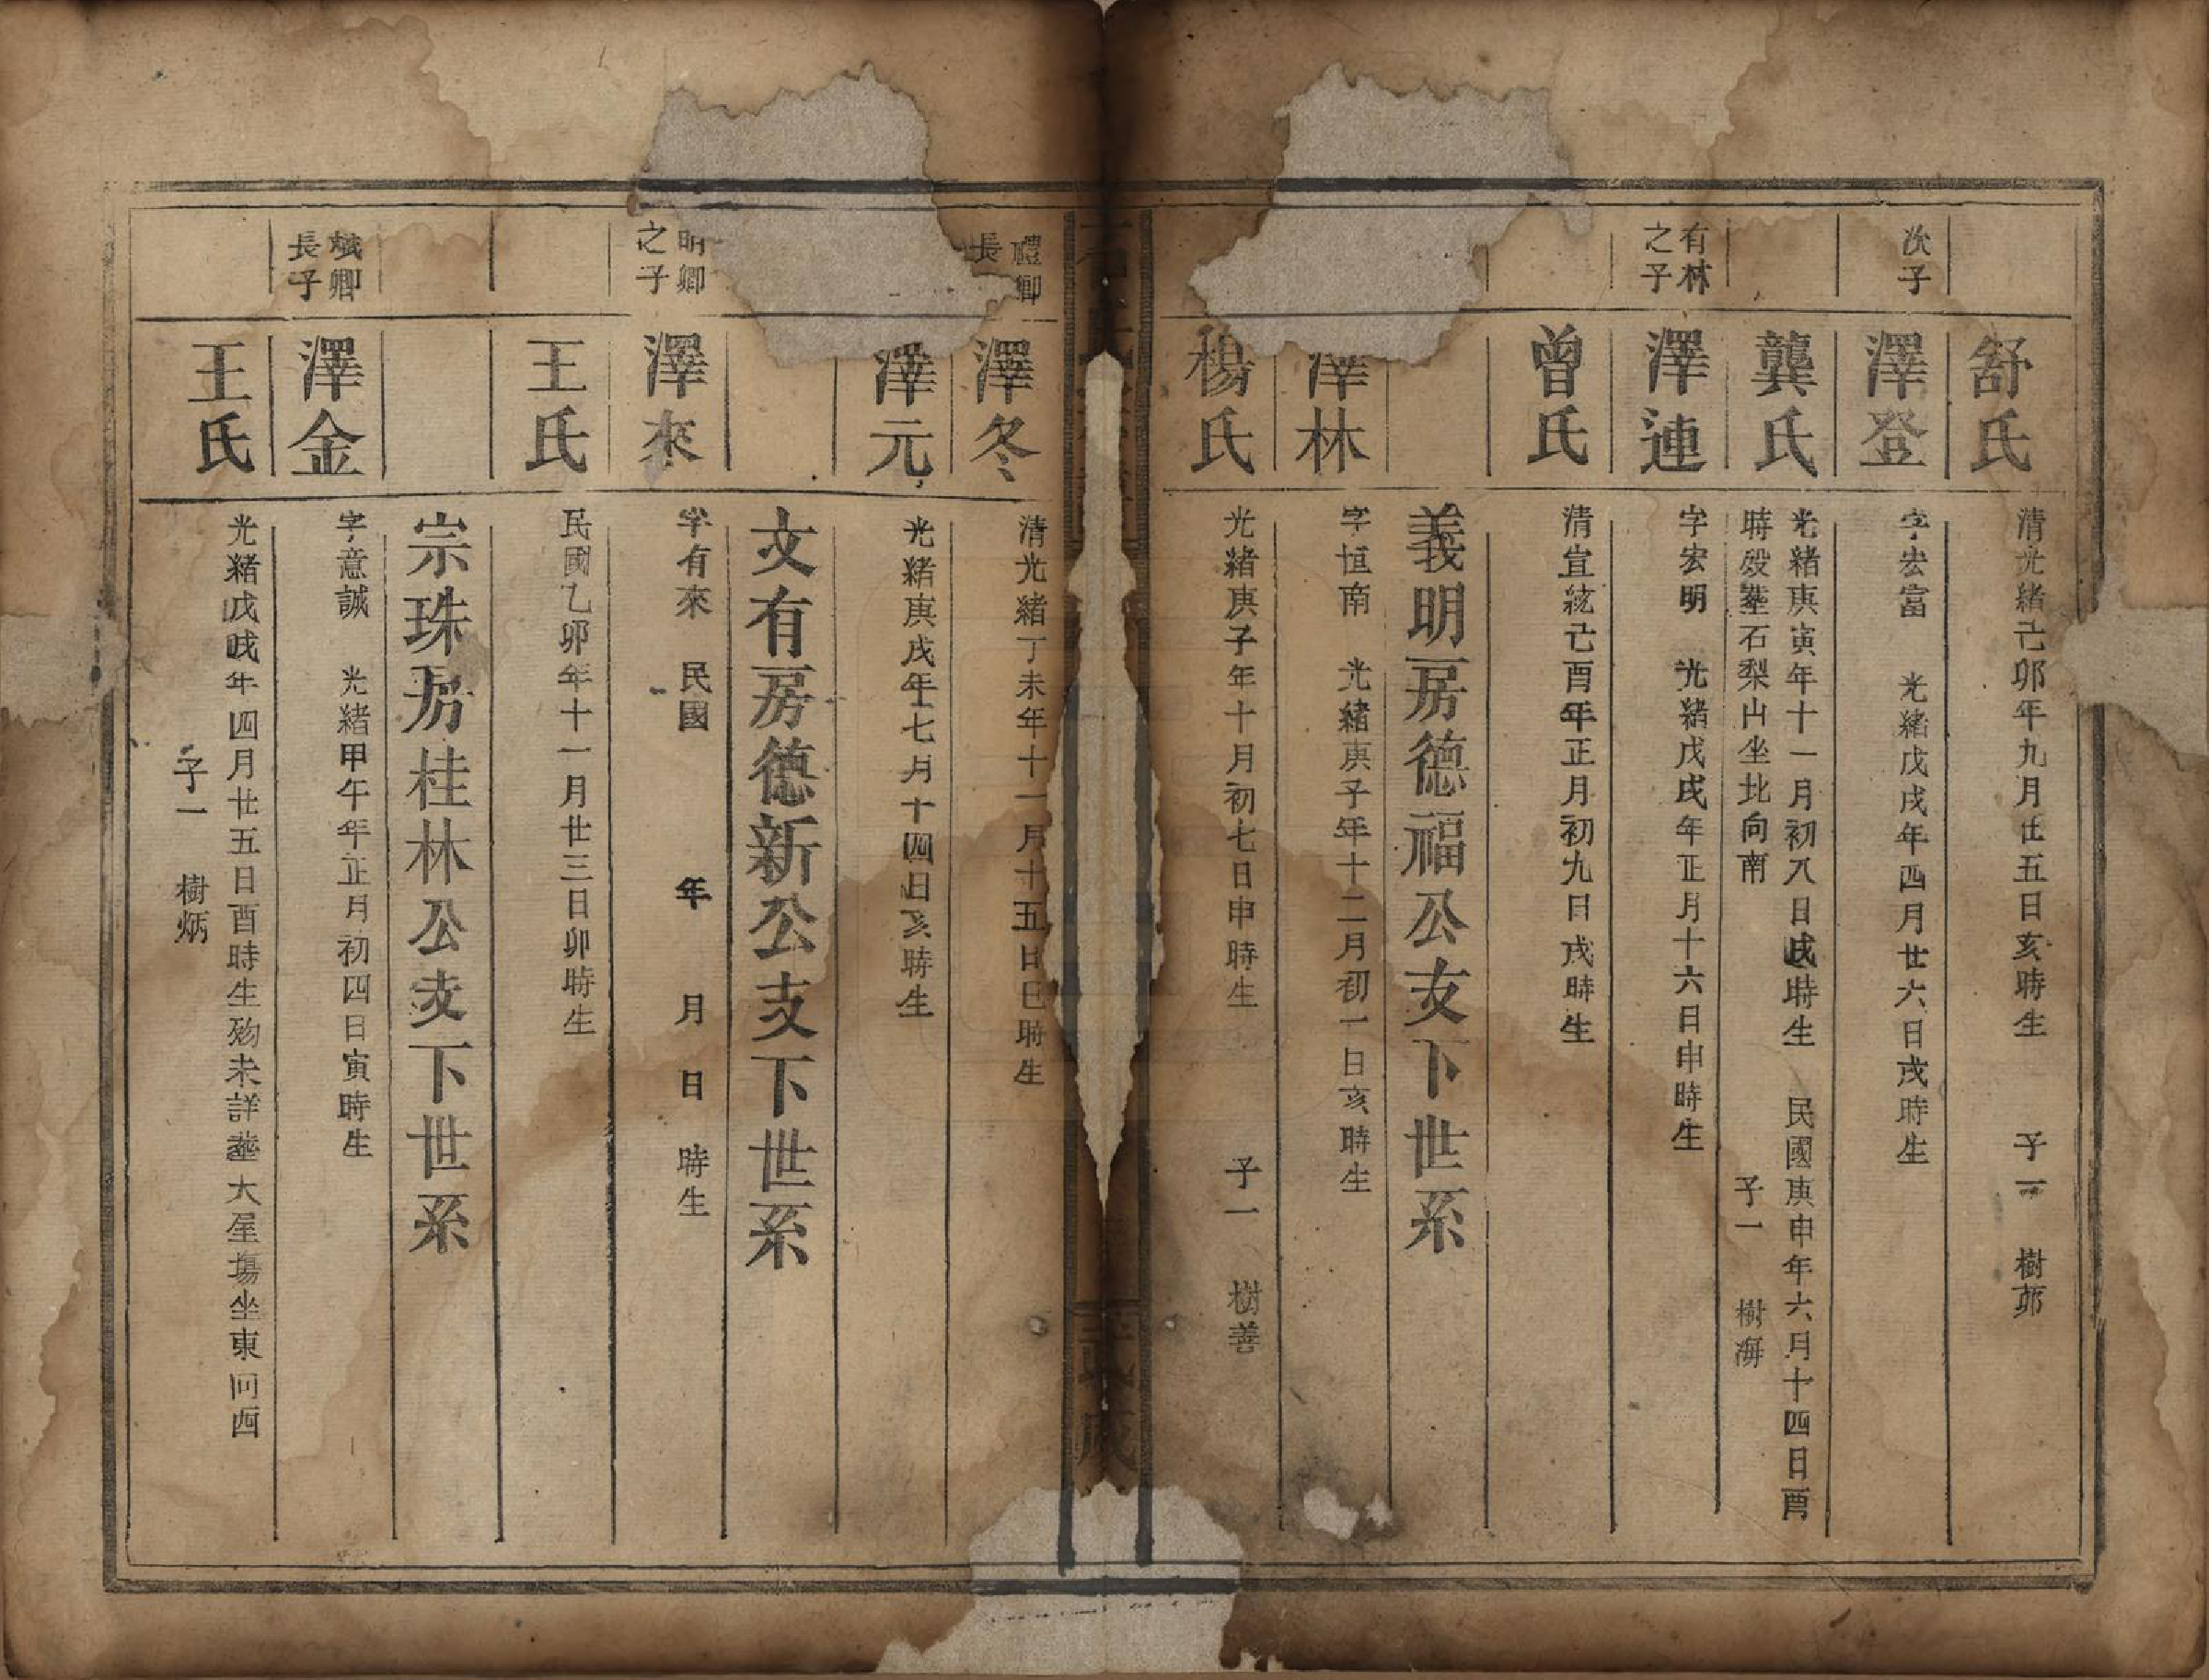 舒氏
清光緒己卯年九月廿五日亥時生 子一 樹茆
次子
澤登
字宏富 光緒戊戌年四月廿六日戌時生
龔氏
光緒庚寅年十一月初八日戌時生 民國庚申年六月十四日酉
時歿塟石梨山坐北向南 子一 樹海
有林
之子
澤連
字宏明 光緒戊戌年正月十六日申時生
曾氏
清宣統己酉年正月初九日戌時生
義明房德福公支下世系
澤林
字恒南 光緒庚子年十二月初一日亥時生
楊氏
光緒庚子年十月初七日申時生 子一 樹善
禮卿
長
澤冬
清光緒丁未年十一月十五日巳時生
澤元
光緒庚戌年七月十四日亥時生
文有房德新公支下世系
明卿
之子
澤來
字有來 民國 年 月 日 時生
王氏
民國乙卯年十一月廿三日卯時生
宗珠房桂林公支下世系
斌卿
長子
澤金
字意誠 光緒甲午年正月初四日寅時生
王氏
光緒戊戌年四月廿五日酉時生歿未詳塟大屋塲坐東向西
子一 樹炳